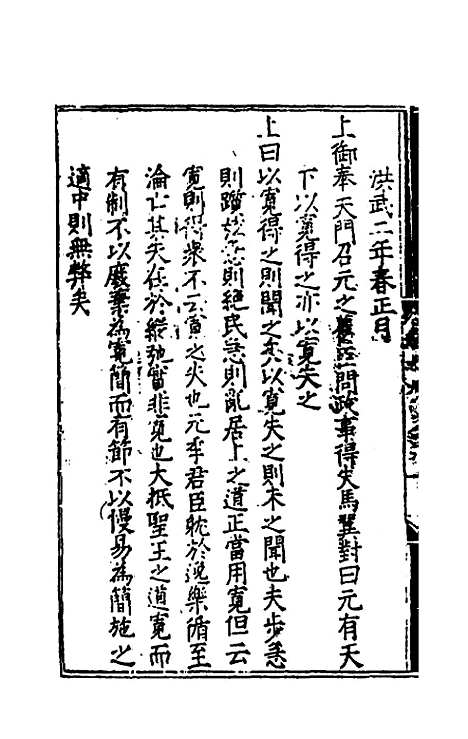 洪武二年春正月
上御奉天門召元之舊臣問政事得失馬翼對曰元有天
下以寬得之亦以寬失之
上曰以寬得之則聞之矣以寬失之則未之聞也夫步急
則躓弦急則絕民急則亂居上之道正當用寬但云
寬則得衆不云寬之失也元季君臣躭於逸樂循至
淪亡其失在於縱弛實非寬也大抵聖王之道寬而
有制不以廢棄為寬簡而有節不以慢易為簡施之
適中則無弊矣